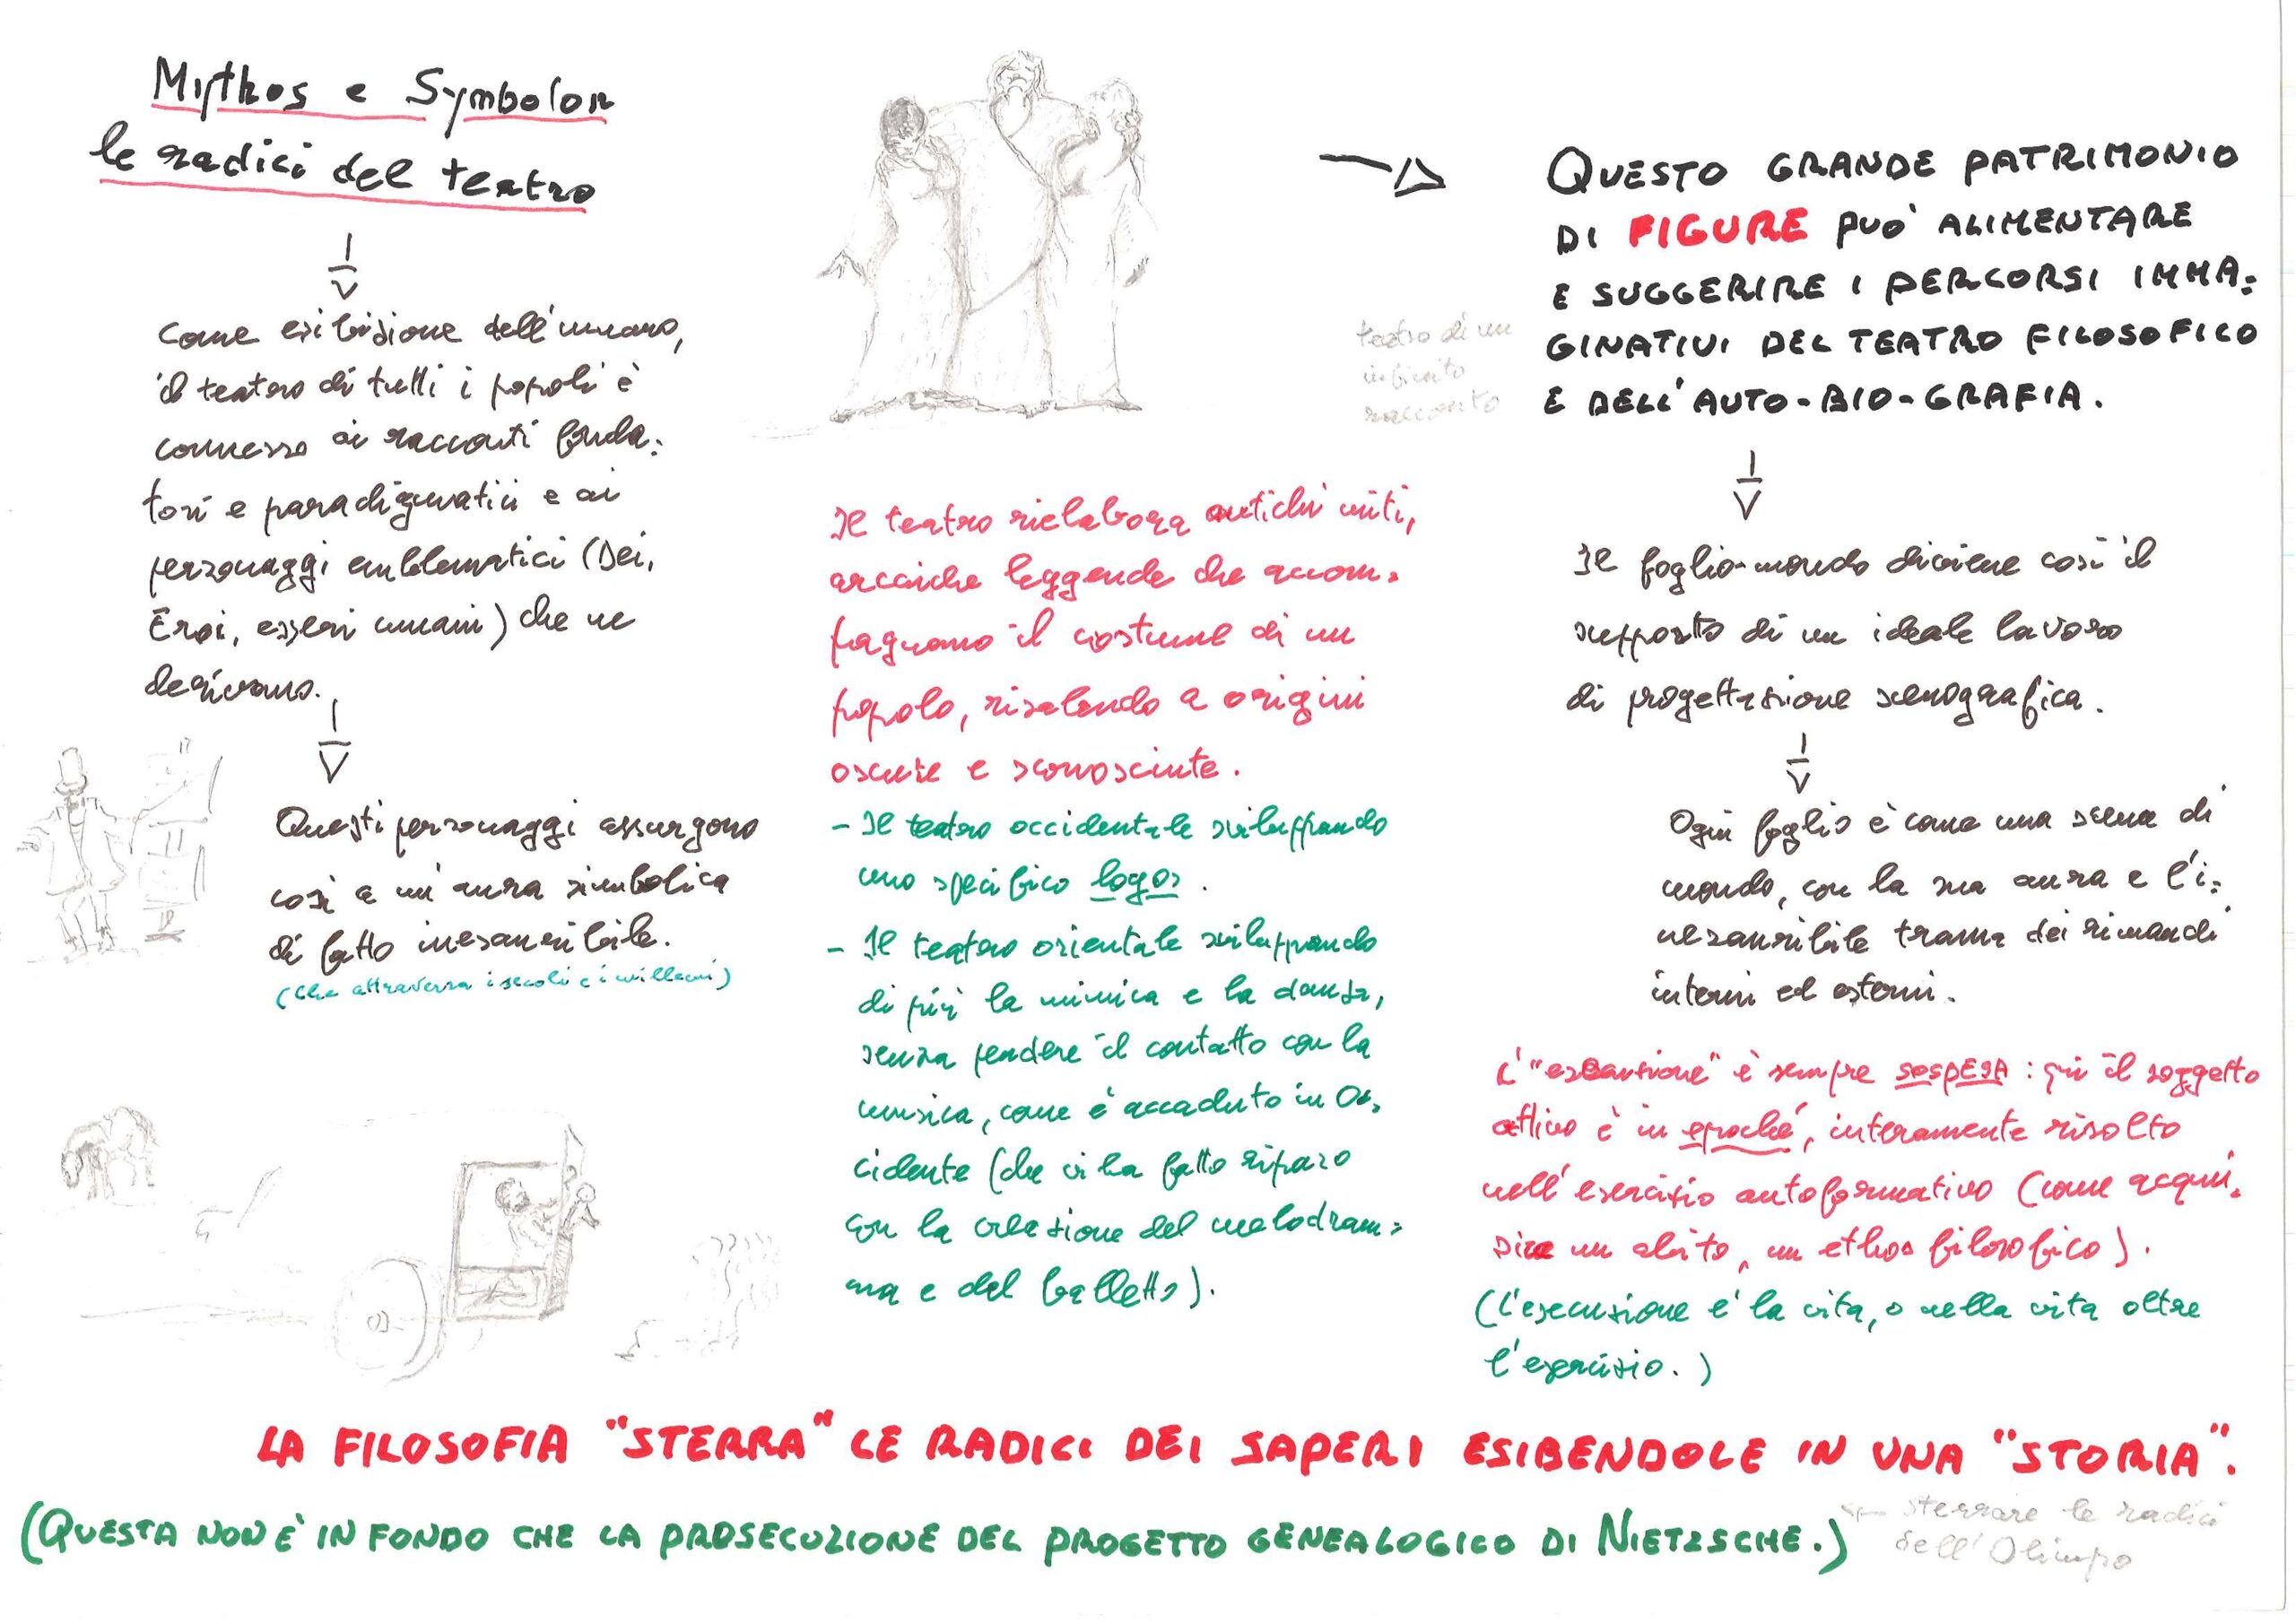 Mythos e Symbolon
le radici del teatro
Come esibizione dell'umano,
il teatro di tutti i popoli è
connesso ai racconti fonda=
tori e paradigmatici e ai
personaggi emblematici (Dei,
Eroi, esseri umani) che ne
derivano.
Questi personaggi assurgono
così a un'aura simbolica
di fatto inesauribile.
(che attraversa i secoli e i millenni)
Il teatro rielabora antichi miti,
arcaiche leggende che accom=
pagnano il costume di un
popolo, risalendo a origini
oscure e sconosciute.
- Il teatro occidentale sviluppando
uno specifico logos.
- Il teatro orientale sviluppando
di più la mimica e la danza,
senza perdere il contatto con la
musica, come è accaduto in Oc=
cidente (che vi ha fatto riparo
con la creazione del melodram=
ma e del balletto).
teatro di un
infinito
racconto
QUESTO GRANDE PATRIMONIO
DI FIGURE PUÒ ALIMENTARE
E SUGGERIRE I PERCORSI IMMA=
GINATIVI DEL TEATRO FILOSOFICO
E DELL'AUTO-BIO-GRAFIA.
Il foglio-mondo diviene così il
supporto di un ideale lavoro
di progettazione scenografica.
Ogni foglio è come una scena di
mondo, con la sua aura e l'i=
nesauribile trama dei rimandi
interni ed esterni.
L'"esecuzione" è sempre SOSPESA: qui il soggetto
attivo è in epoché, interamente risolto
nell'esercizio autoformativo (come acqui=
sire un abito, un ethos filosofico).
(L'esecuzione è la vita, o nella vita oltre
l'esercizio.)
LA FILOSOFIA "STERRA" LE RADICI DEI SAPERI ESIBENDOLE IN UNA "STORIA".
(QUESTA NON È IN FONDO CHE LA PROSECUZIONE DEL PROGETTO GENEALOGICO DI NIETZSCHE.)
← sterrare le radici
dell'Olimpo